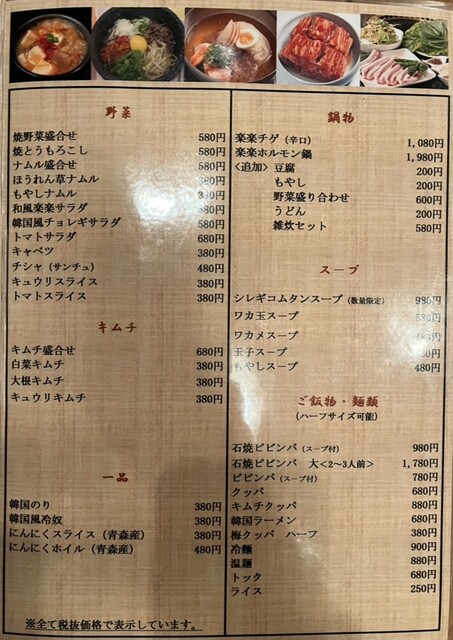 野菜
焼野菜盛合せ 580円
焼とうもろこし 580円
ナムル盛合せ 580円
ほうれん草ナムル 380円
もやしナムル 380円
和風楽楽サラダ 580円
韓国風チョレギサラダ 580円
トマトサラダ 680円
キャベツ 380円
チシャ（サンチュ） 480円
キュウリスライス 380円
トマトスライス 380円
キムチ
キムチ盛合せ 680円
白菜キムチ 380円
大根キムチ 380円
キュウリキムチ 380円
一品
韓国のり 380円
韓国風冷奴 380円
にんにくスライス（青森産） 380円
にんにくホイル（青森産） 480円
※全て税抜価格で表示しています。
鍋物
楽楽チゲ（辛口） 1,080円
楽楽ホルモン鍋 1,980円
<追加> 豆腐 200円
もやし 200円
野菜盛り合わせ 600円
うどん 200円
雑炊セット 580円
スープ
シレギコムタンスープ（数量限定） 980円
ワカ玉スープ 580円
ワカメスープ 円
玉子スープ 円
もやしスープ 480円
ご飯物・麺類
（ハーフサイズ可能）
石焼ビビンバ（スープ付） 980円
石焼ビビンバ 大<2～3人前> 1,780円
ビビンバ（スープ付） 780円
クッパ 680円
キムチクッパ 880円
韓国ラーメン 680円
梅クッパ ハーフ 380円
冷麺 900円
温麺 880円
トック 680円
ライス 250円